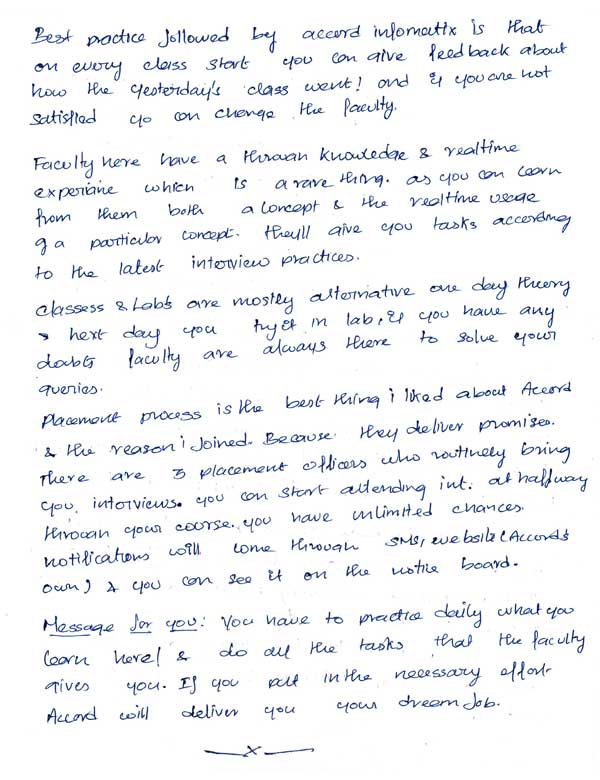 Best practice followed by accord infomatix is that
on every class start you can give feedback about
how the yesterday's class went! and if you are not
satisfied yo can change the faculty.
Faculty here have a throuan knowledge & realtime
experiane which is a rare thing. as you can learn
from them both a concept & the realtime usage
of a particular concept. they'll give you tasks according
to the latest interview practices.
classess & Labs are mostly alternative one day theory
& next day you try it in lab, if you have any
doubts faculty are always there to solve your
queries.
Placement process is the best thing i liked about Accord
& the reason i joined. Because they deliver promises.
There are 3 placement officers who routinely bring
you interviews. you can start attending int. at halfway
throuan your course. you have unlimited chances.
notifications will come through SMS, website (Accords
own) & you can see it on the notice board.
Message for you: You have to practice daily what you
learn here! & do all the tasks that the faculty
gives you. If you put in the necessary effort.
Accord will deliver you your dream job.
x